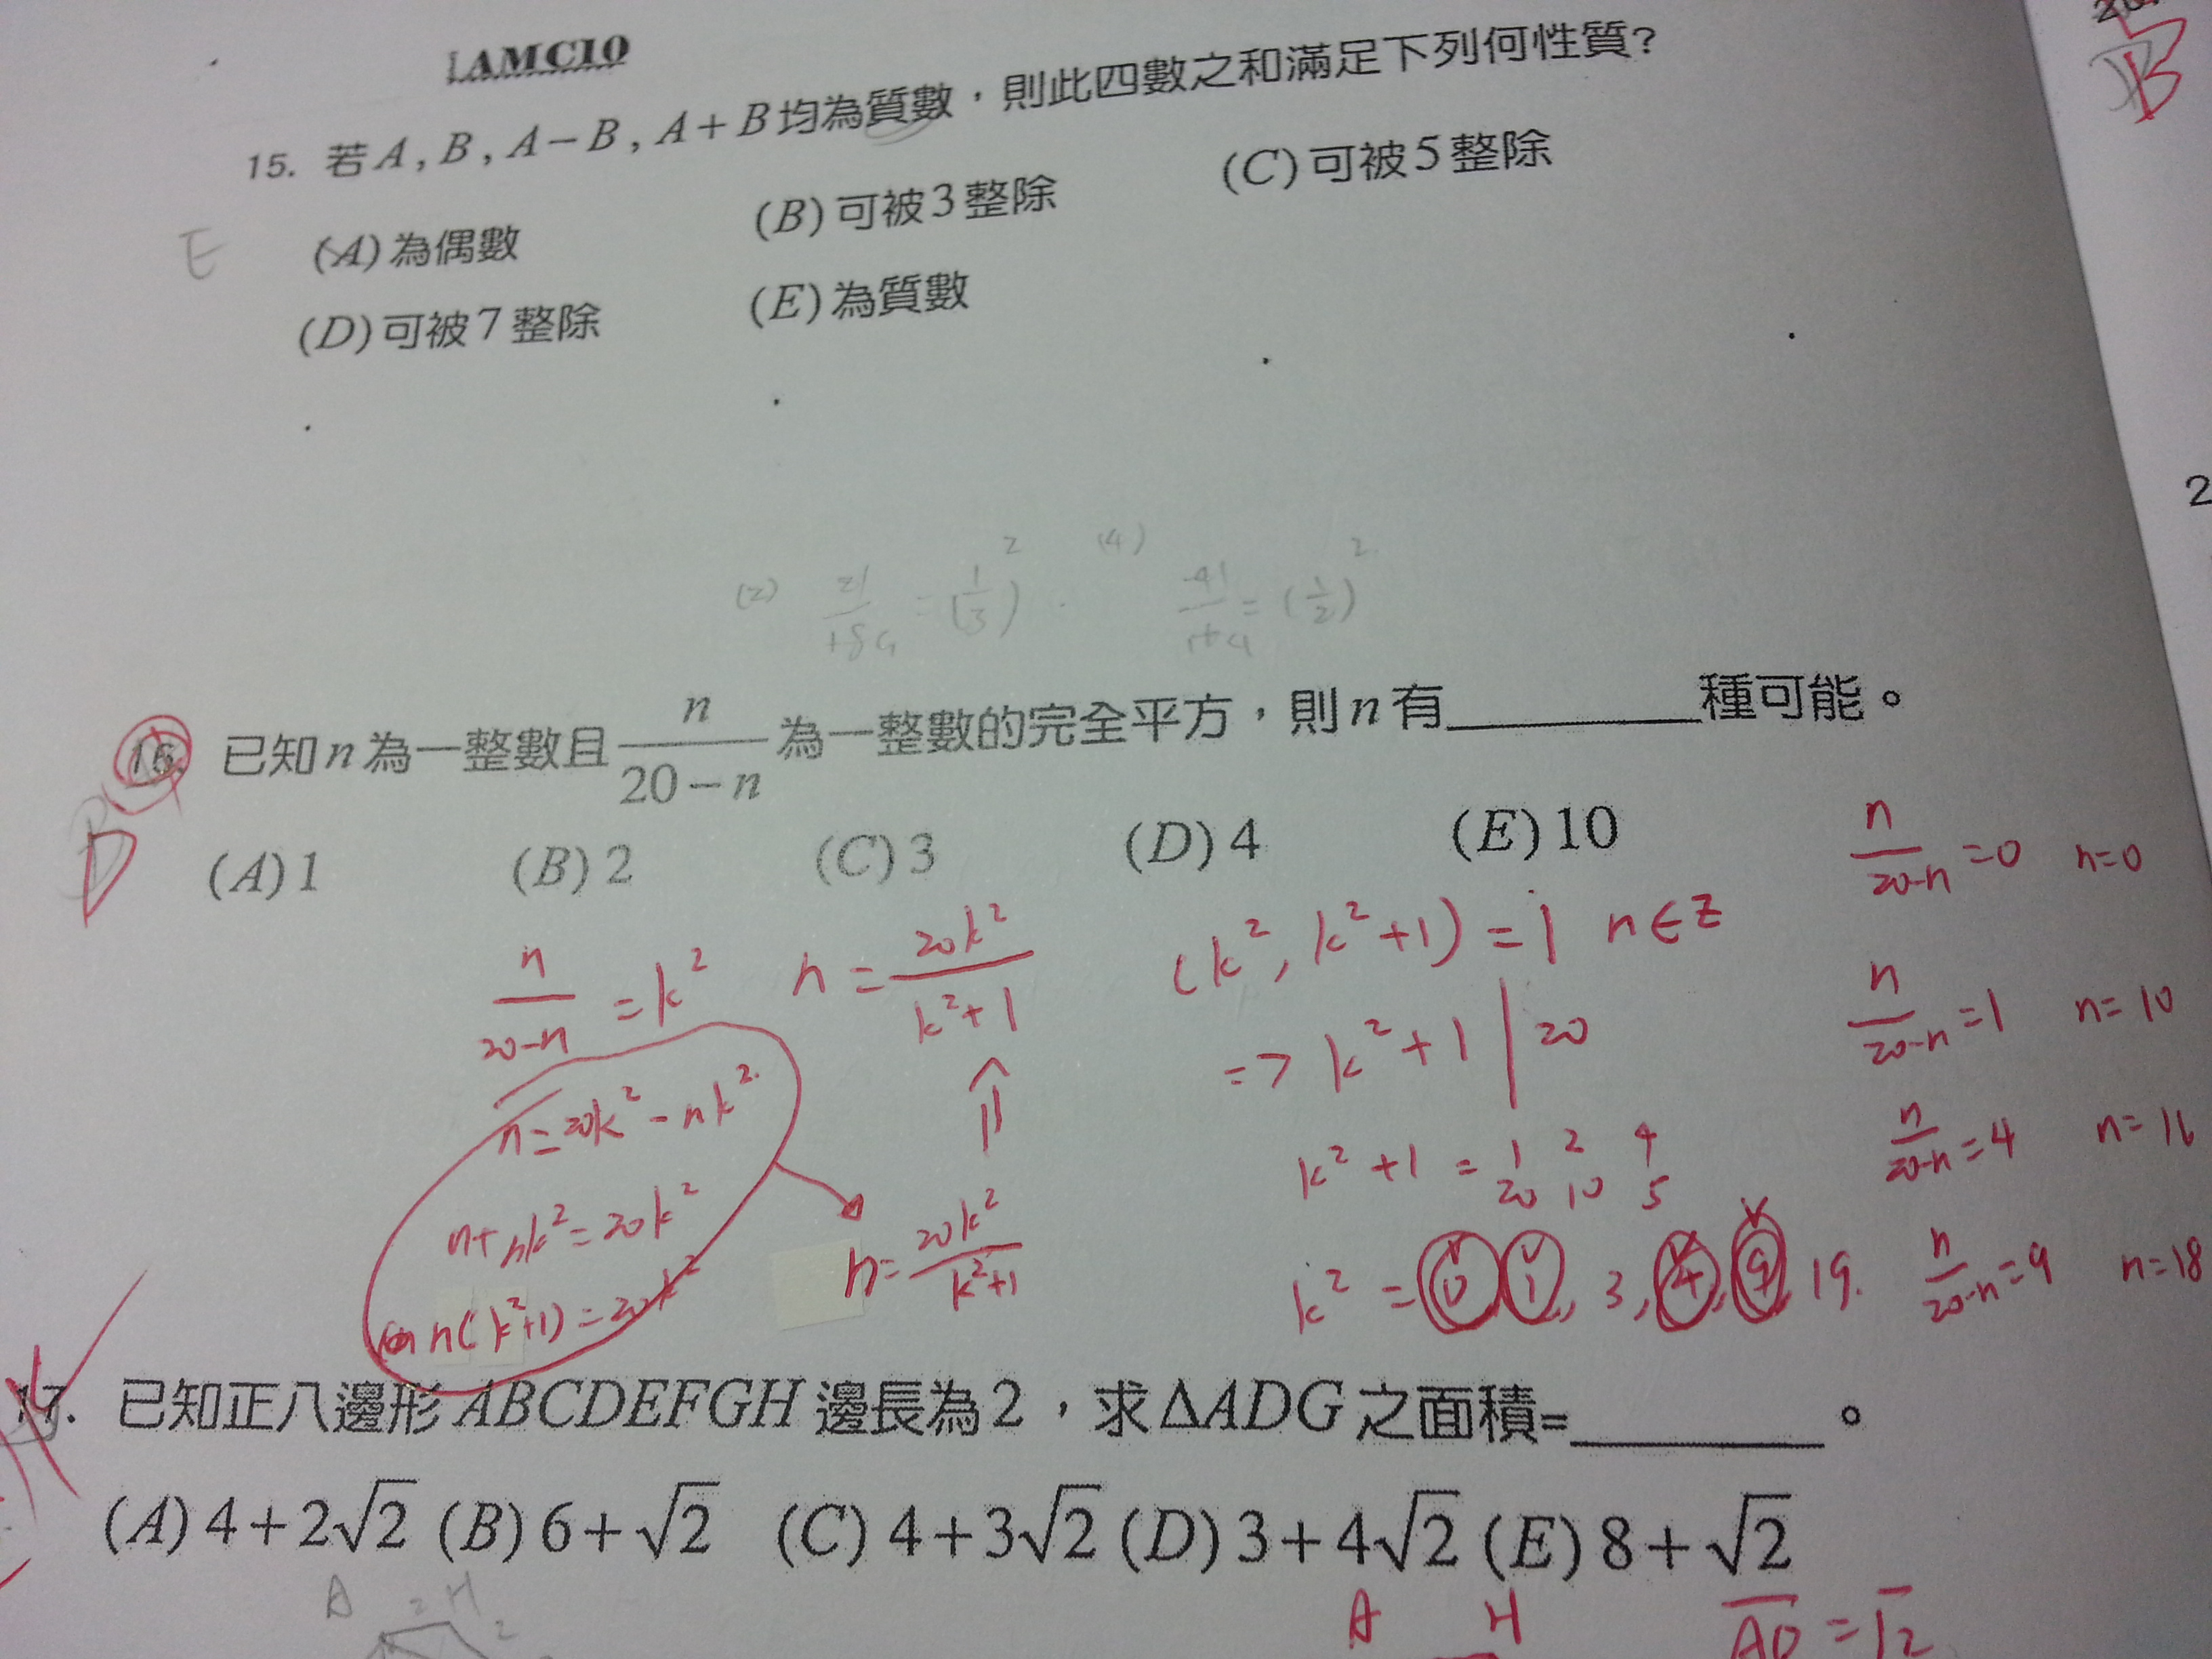 AMC10
15. 若A,B,A−B,A+B均為質數，則此四數之和滿足下列何性質?
E
(A)為偶數 (B)可被3整除 (C)可被5整除
(D)可被7整除 (E)為質數
(2) = (1/3)² (4) = (1/2)²
16. 已知n為一整數且 n/(20−n) 為一整數的完全平方，則n有______種可能。
D
(A)1 (B)2 (C)3 (D)4 (E)10
n/(20-n) = k²
n = 20k²/(k²+1)
(k², k²+1) = 1 n∈Z
n = 20k² - nk²
=> k²+1 | 20
n+nk² = 20k²
k²+1 = 1 2 4
20 10 5
n(k²+1) = 20k²
n = 20k²/(k²+1)
k² = 0, 1, 3, 4, 9, 19.
n/(20-n) = 0 n=0
n/(20-n) = 1 n=10
n/(20-n) = 4 n=16
n/(20-n) = 9 n=18
17. 已知正八邊形ABCDEFGH邊長為2，求ΔADG之面積=______。
(A)4+2√2 (B)6+√2 (C)4+3√2 (D)3+4√2 (E)8+√2
A 2 H 2
A H
B
2